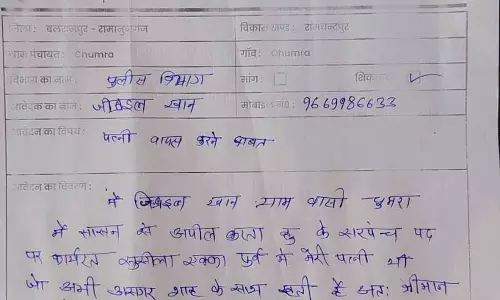 जिला: बलरामपुर - रामानुजगंज
विकास खण्ड: रामचन्द्रपुर
ग्राम पंचायत: Chumra
गाँव: Chumra
विभाग का नाम: पुलिस विभाग
मांग:
शिका
आवेदक का नाम: जीब्रइल खान
मोबाइल नं0: 9669986633
आवेदन का विषय: पत्नी वापस करने बाबत
आवेदन का विवरण:
मैं खान ग्राम वासी चुमरा
में सासन से अपील करता हु के सरपंच पद
पर कार्यरत सुसीला एक्का पुर्व मे मेरी पत्नी थी
जो अभी असगर शाह के साथ रहती है अतः श्रीमान